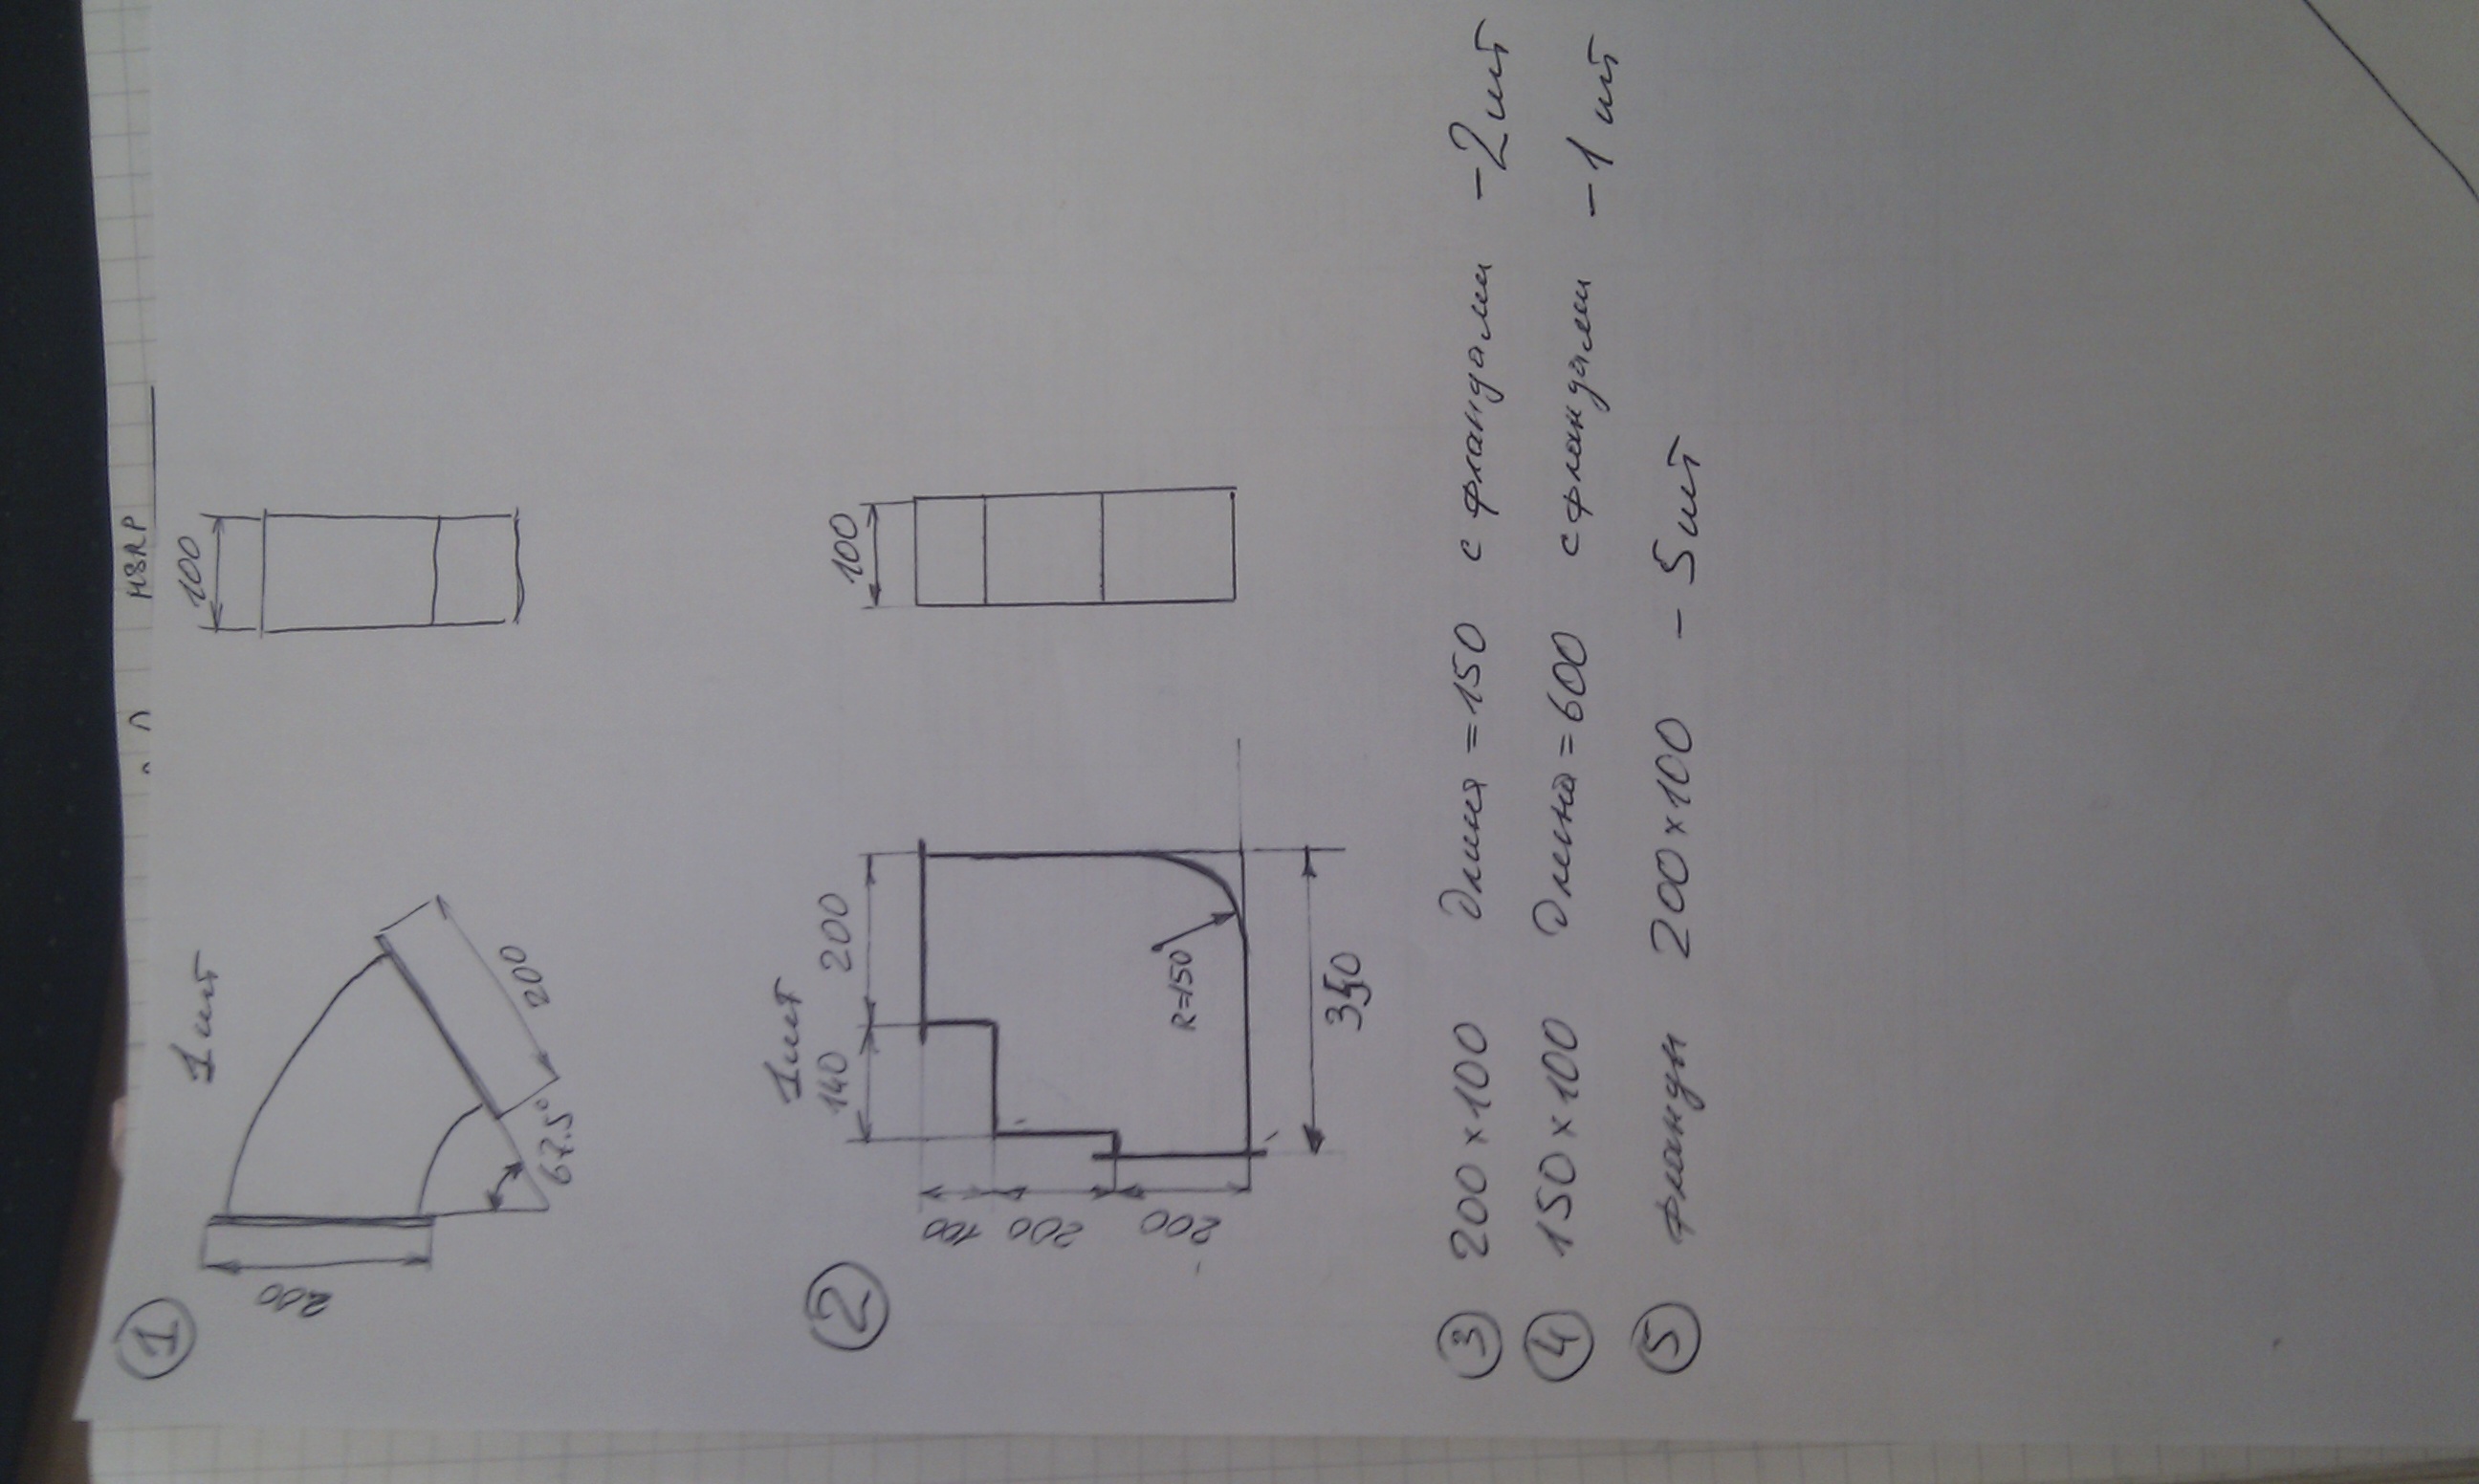 ① 1шт
200
200
67.5°
100
② 1шт
140 200
100
200
200
R=150
350
100
③ 200×100 Длина=150 с фланцами -2шт
④ 150×100 Длина=600 с фланцами -1шт
⑤ фланцы 200×100 - 5шт